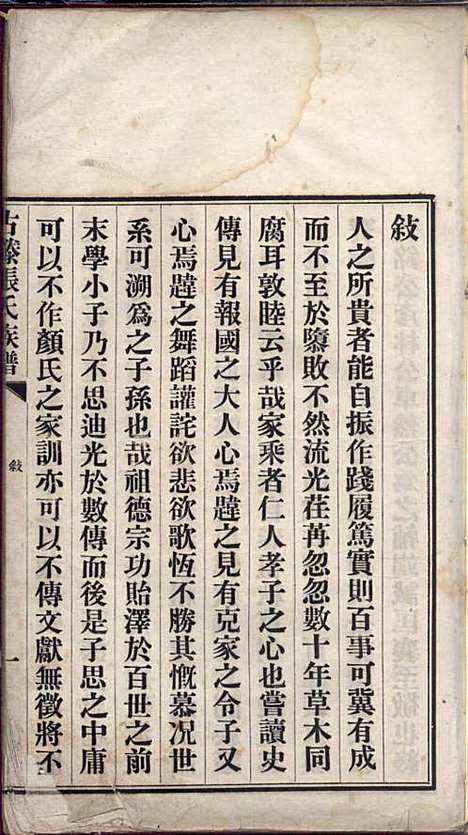 敍
人之所貴者能自振作踐履篤實則百事可冀有成
而不至於隳敗不然流光荏苒忽忽數十年草木同
腐耳敦睦云乎哉家乘者仁人孝子之心也嘗讀史
傳見有報國之大人心焉韙之見有克家之令子又
心焉韙之舞蹈讙詫欲悲欲歌恆不勝其慨慕况世
系可溯爲之子孫也哉祖德宗功貽澤於百世之前
末學小子乃不思迪光於數傳而後是子思之中庸
可以不作顏氏之家訓亦可以不傳文獻無徵將不
古滕張氏族譜 敍 一